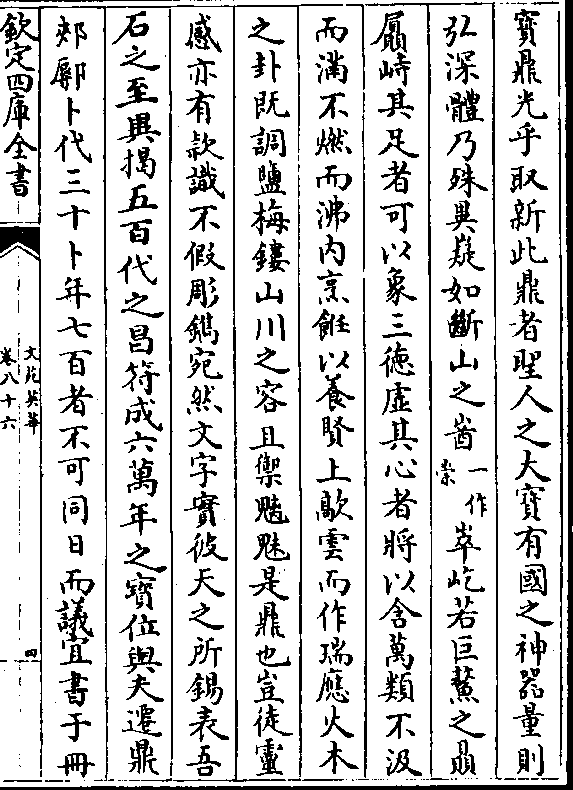 寳鼎光乎取新此鼎者聖人之大寳有國之神器量則
弘深體乃殊異疑如斷山之崷一作崇崒屹若巨鰲之贔
屭峙其足者可以象三徳虚其心者將以含萬類不汲
而滿不燃而沸内烹飪以養賢上歊雲而作瑞應火木
之卦既調鹽梅鏤山川之容且禦魑魅是鼎也豈徒靈
感亦有款識不假彫鐫宛然文字實彼天之所錫表吾
石之至與揭五百代之昌符成六萬年之寳位與夫遷鼎
郟鄏卜代三十卜年七百者不可同日而議宜書于冊
欽定四庫全書
文苑英華
卷八十六
四